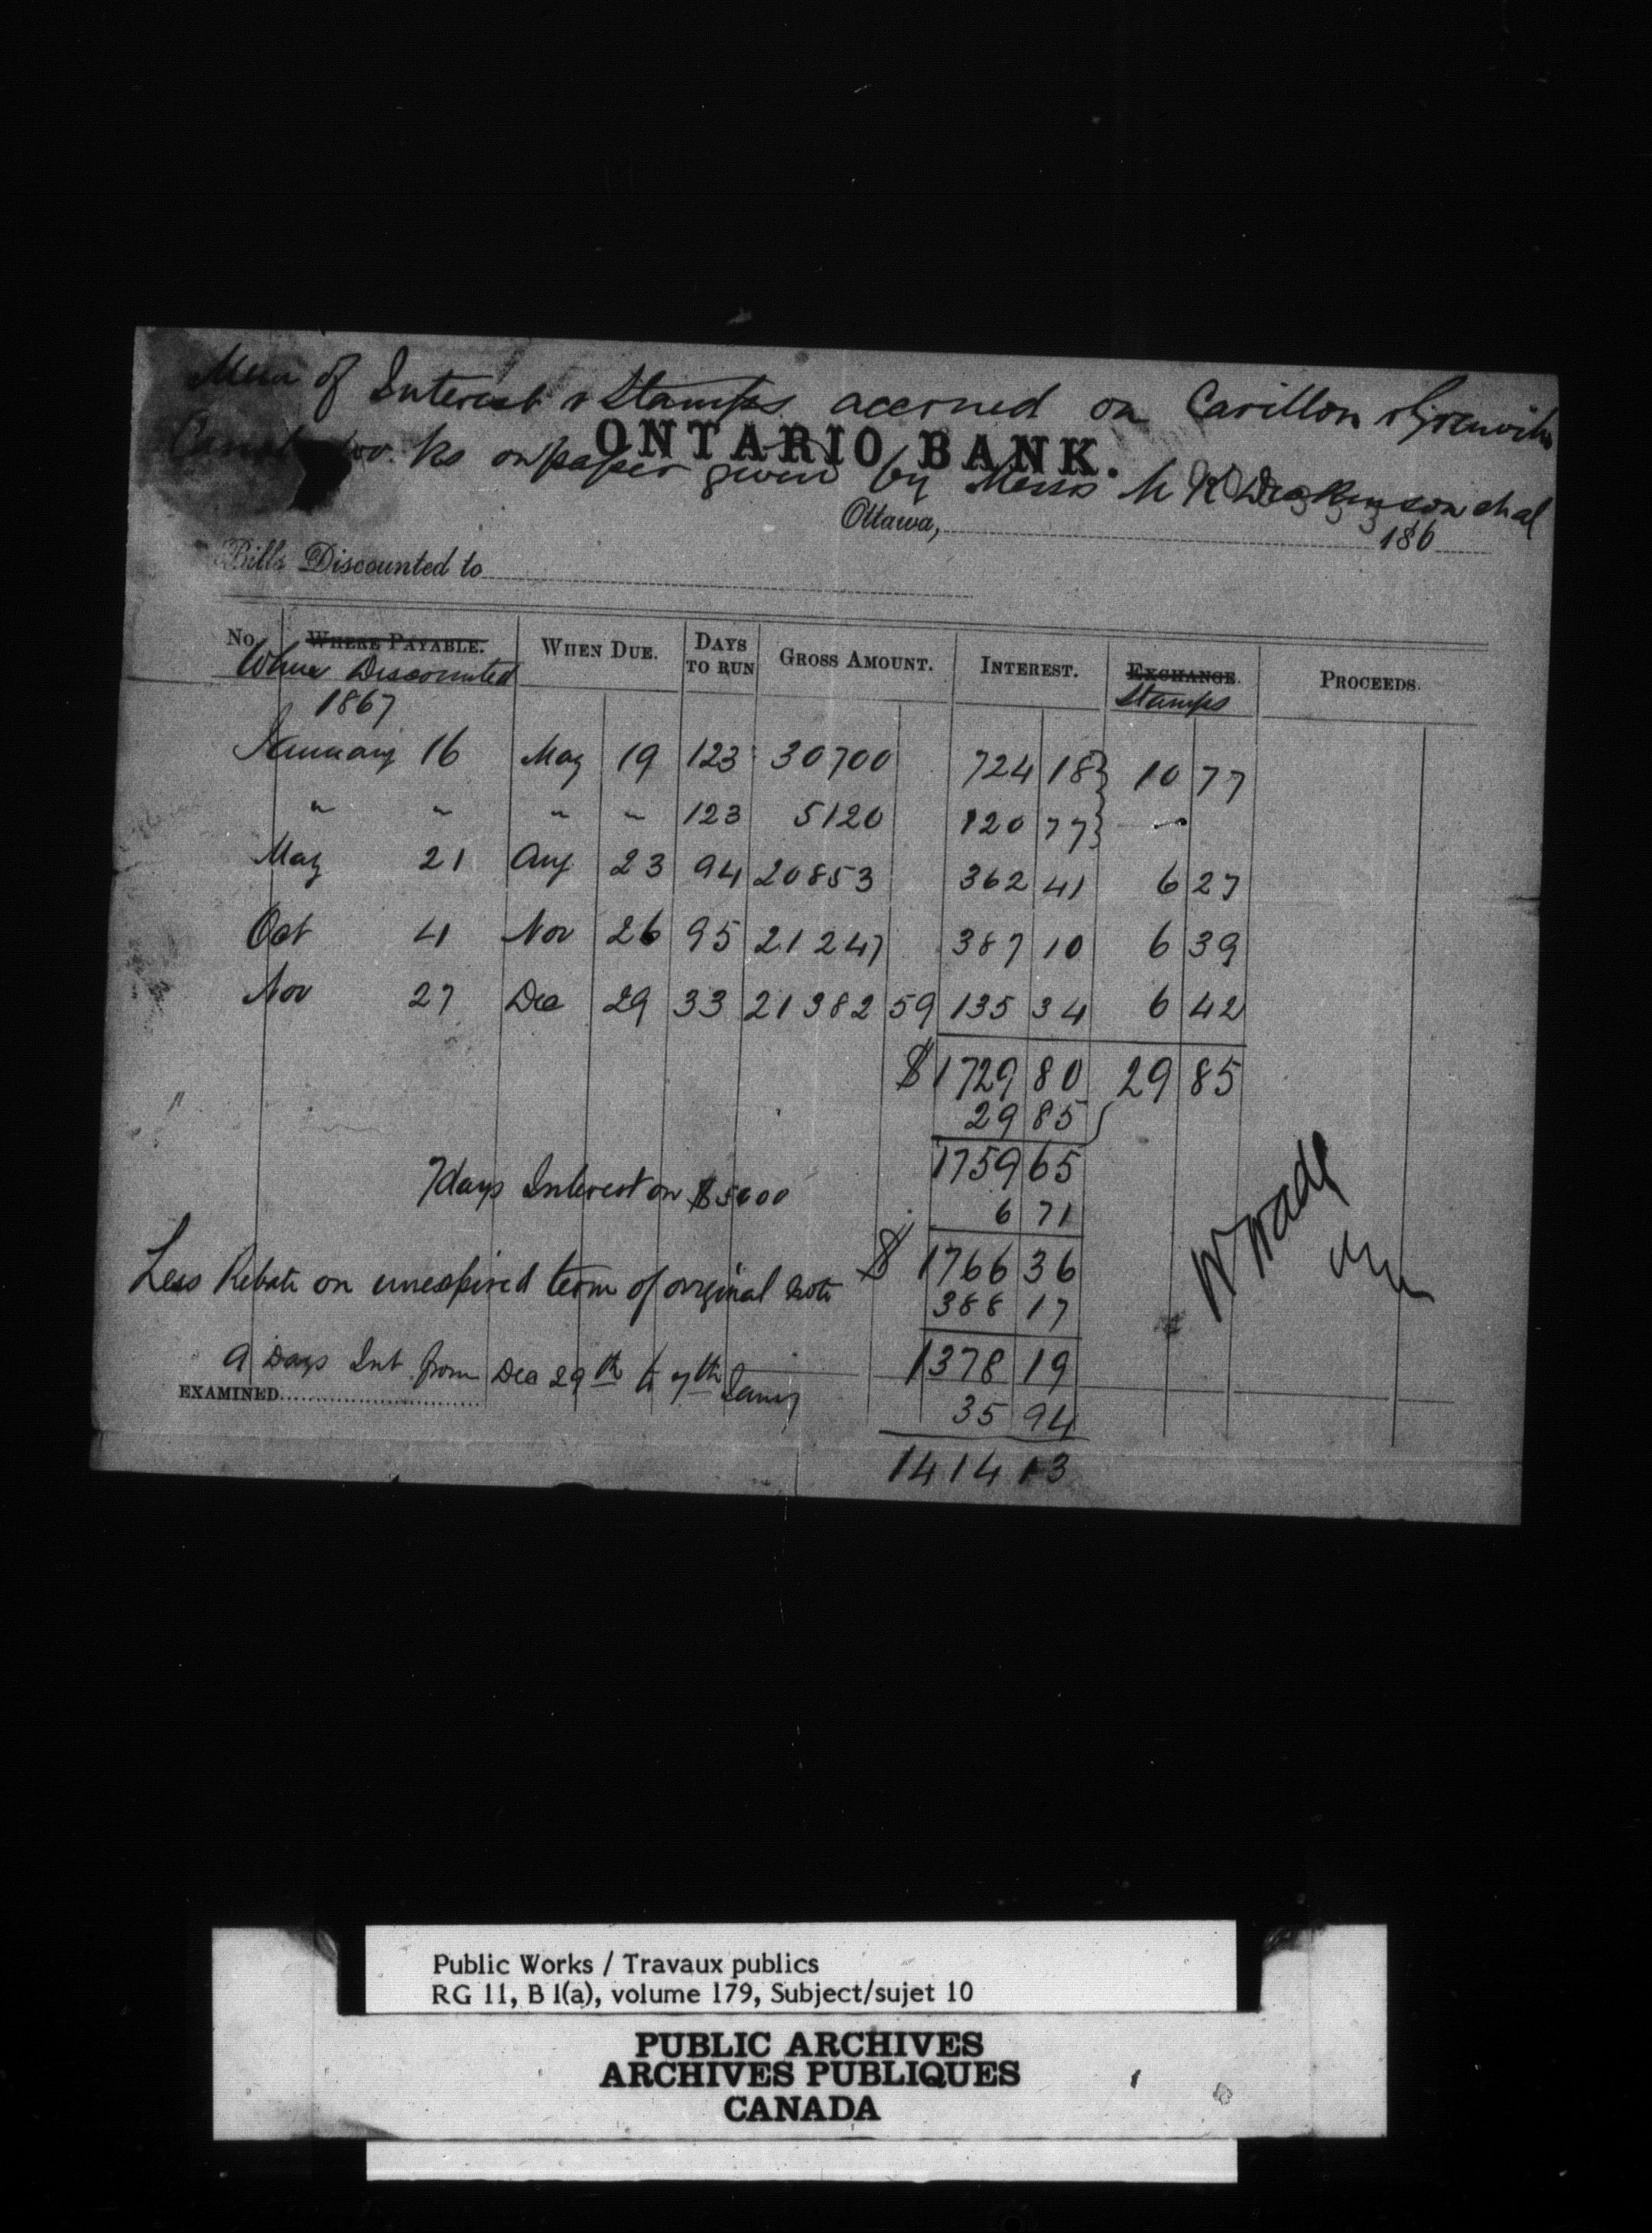 Mem of Interest & Stamps accrued on Carillon & Grenville
Canal works on paper given by Messrs M K Dickinson et al
ONTARIO BANK.
Ottawa, 186
Bills Discounted to
No. WHERE PAYABLE. WHEN DUE. DAYS TO RUN GROSS AMOUNT. INTEREST. EXCHANGE. PROCEEDS.
When Discounted Stamps
1867
January 16 May 19 123 30700 724 18 10 77
" " " " 123 5120 120 77 —
May 21 Aug 23 94 20853 362 41 6 27
Oct 4 Nov 26 95 21247 387 10 6 39
Nov 27 Dec 29 33 21382 59 135 34 6 42
$1729 80 29 85
29 85
1759 65
7 days Interest on $5000 6 71
$1766 36
Less Rebate on unexpired term of original note 388 17
1378 19
9 Days Int from Dec 29th to 7th Jany 35 94
EXAMINED
1414 13
W Wade
Public Works / Travaux publics
RG 11, B 1(a), volume 179, Subject/sujet 10
PUBLIC ARCHIVES
ARCHIVES PUBLIQUES
CANADA